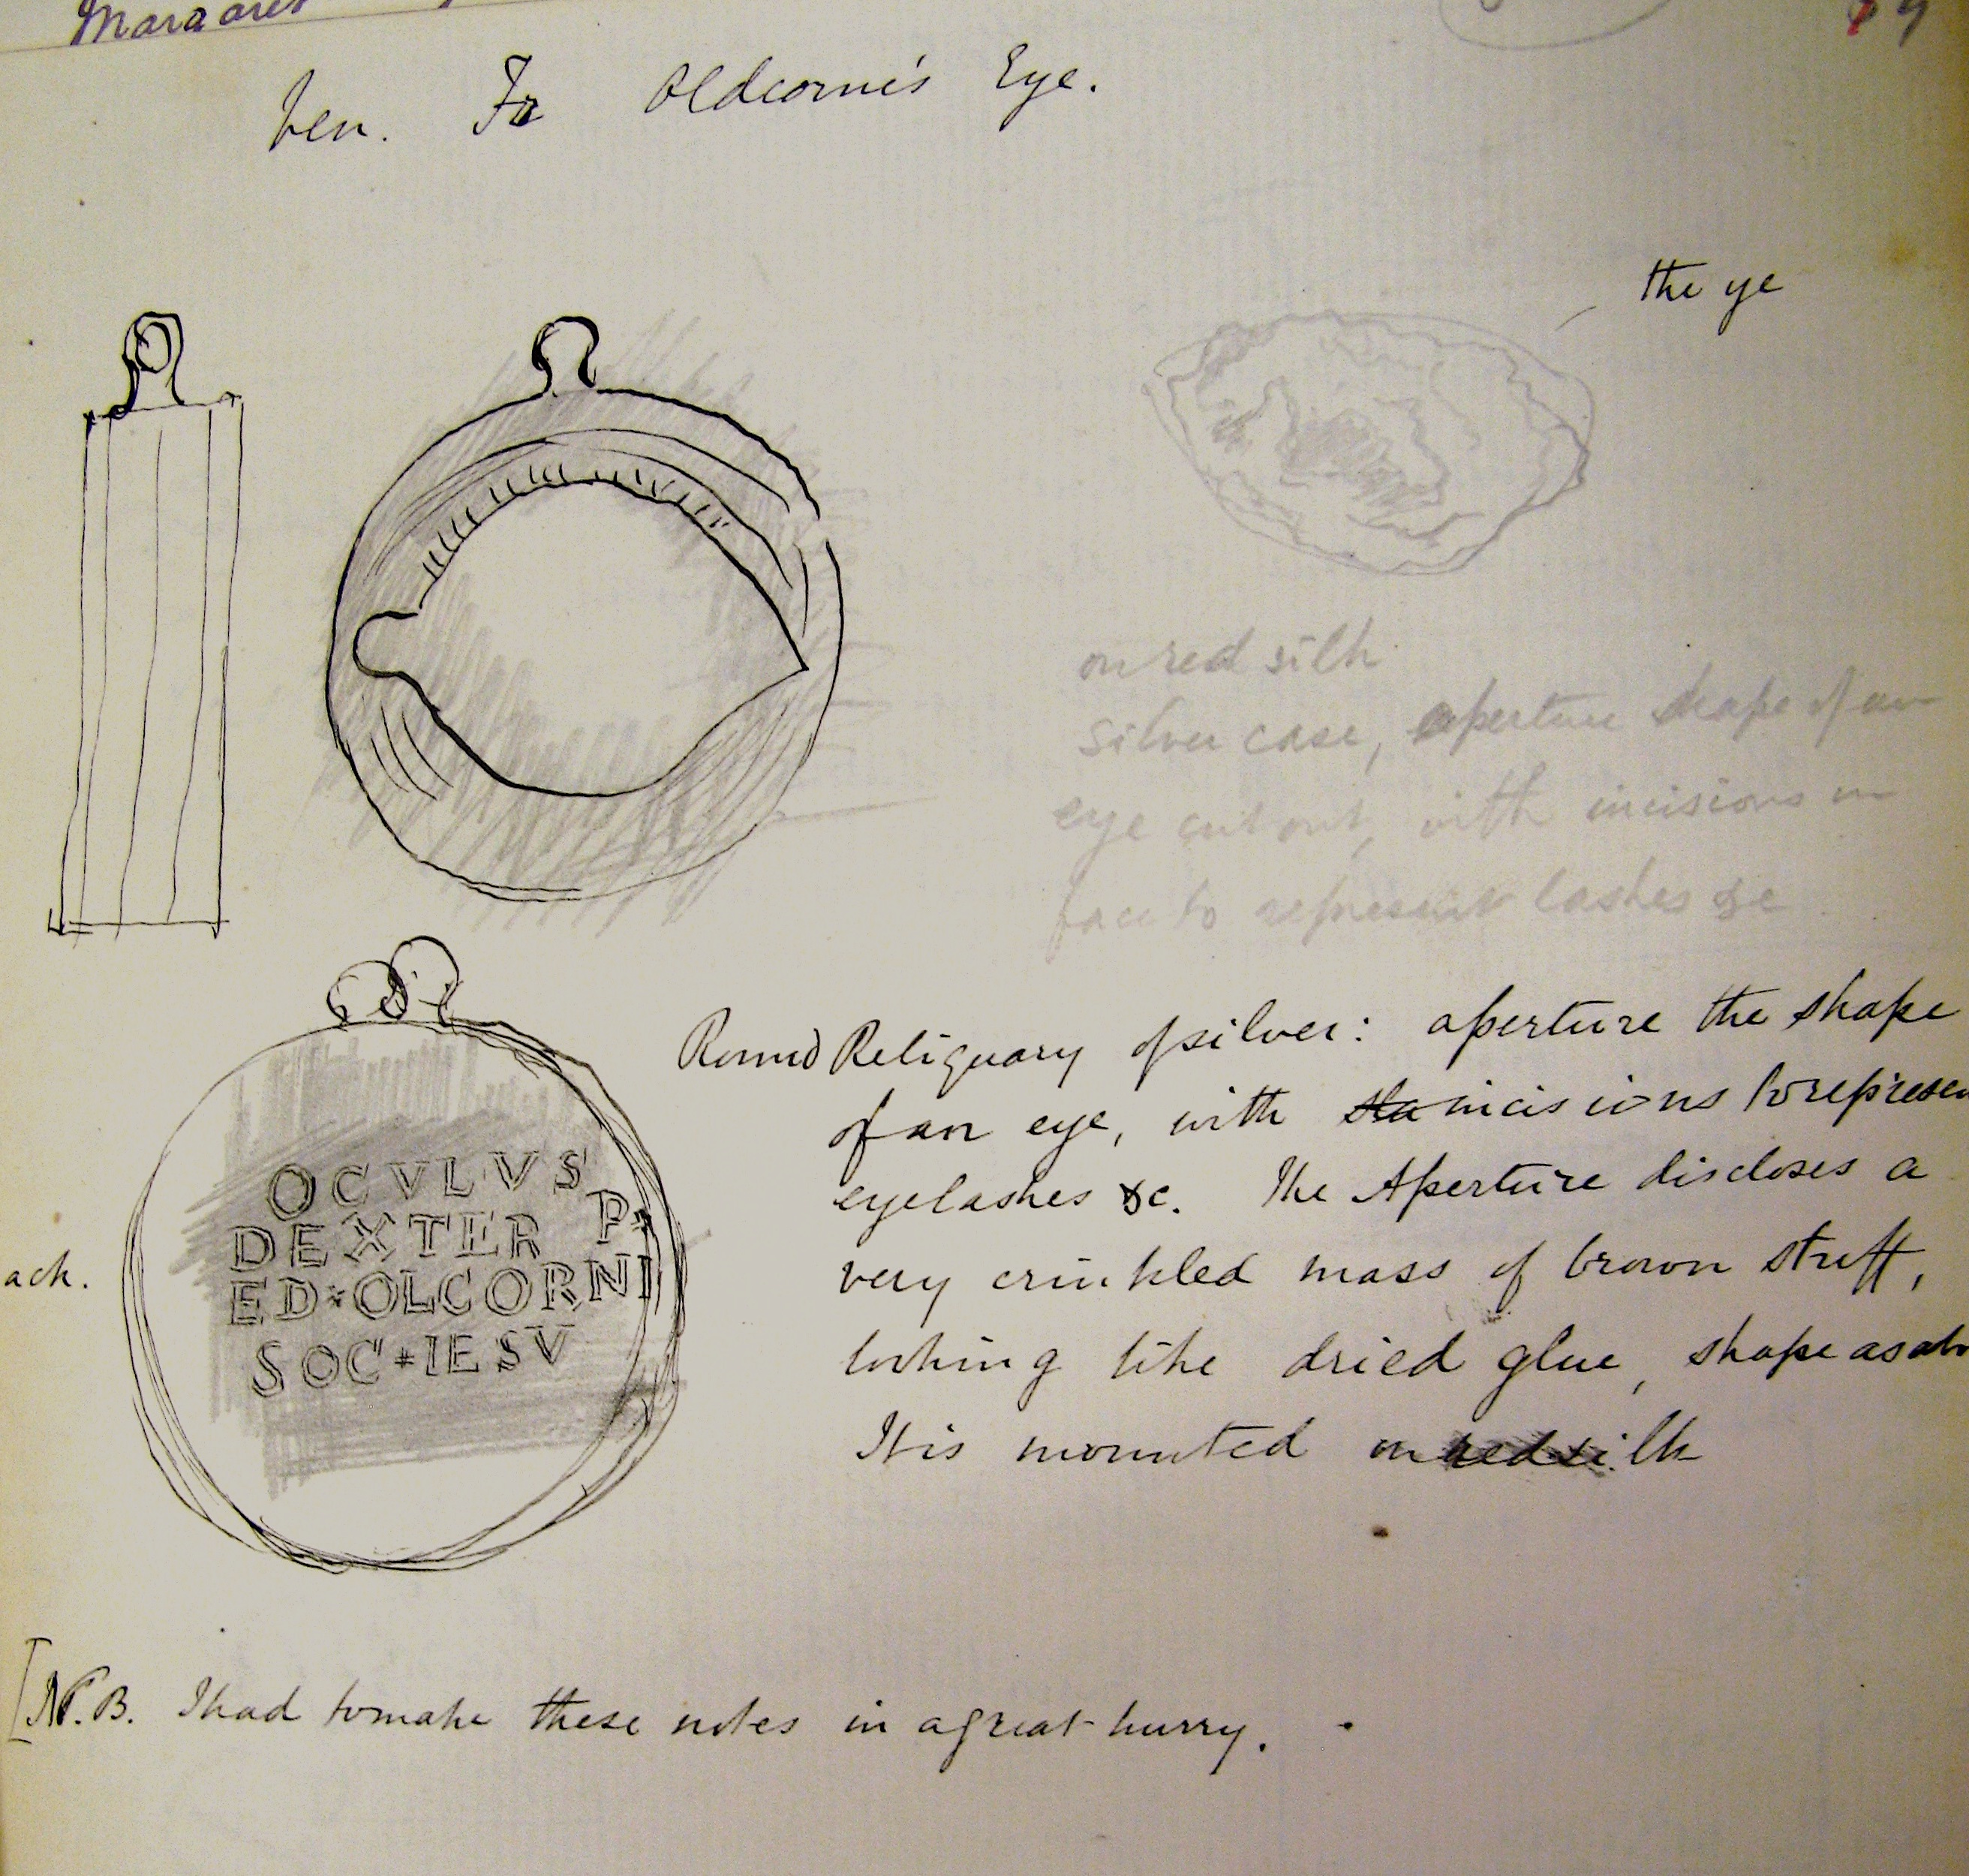 Margaret
Ven. Fr Oldcorne's Eye.
the ye
on red silk
silver case, aperture shape of an
eye cut out, with incisions on
face to represent lashes &c
Round Reliquary of silver: aperture the shape
of an eye, with incisions to represen
eyelashes &c. The Aperture discloses a
very crinkled mass of brown stuff,
looking like dried glue, shape as ab
It is mounted on red silk
OCVLVS
DEXTER P*
ED*OLCORNI
SOC*IESV
ack.
[N.B. I had to make these notes in a great hurry.